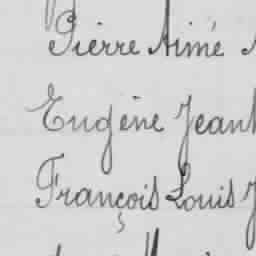 Pierre Aimé
Eugène Jean
François Louis